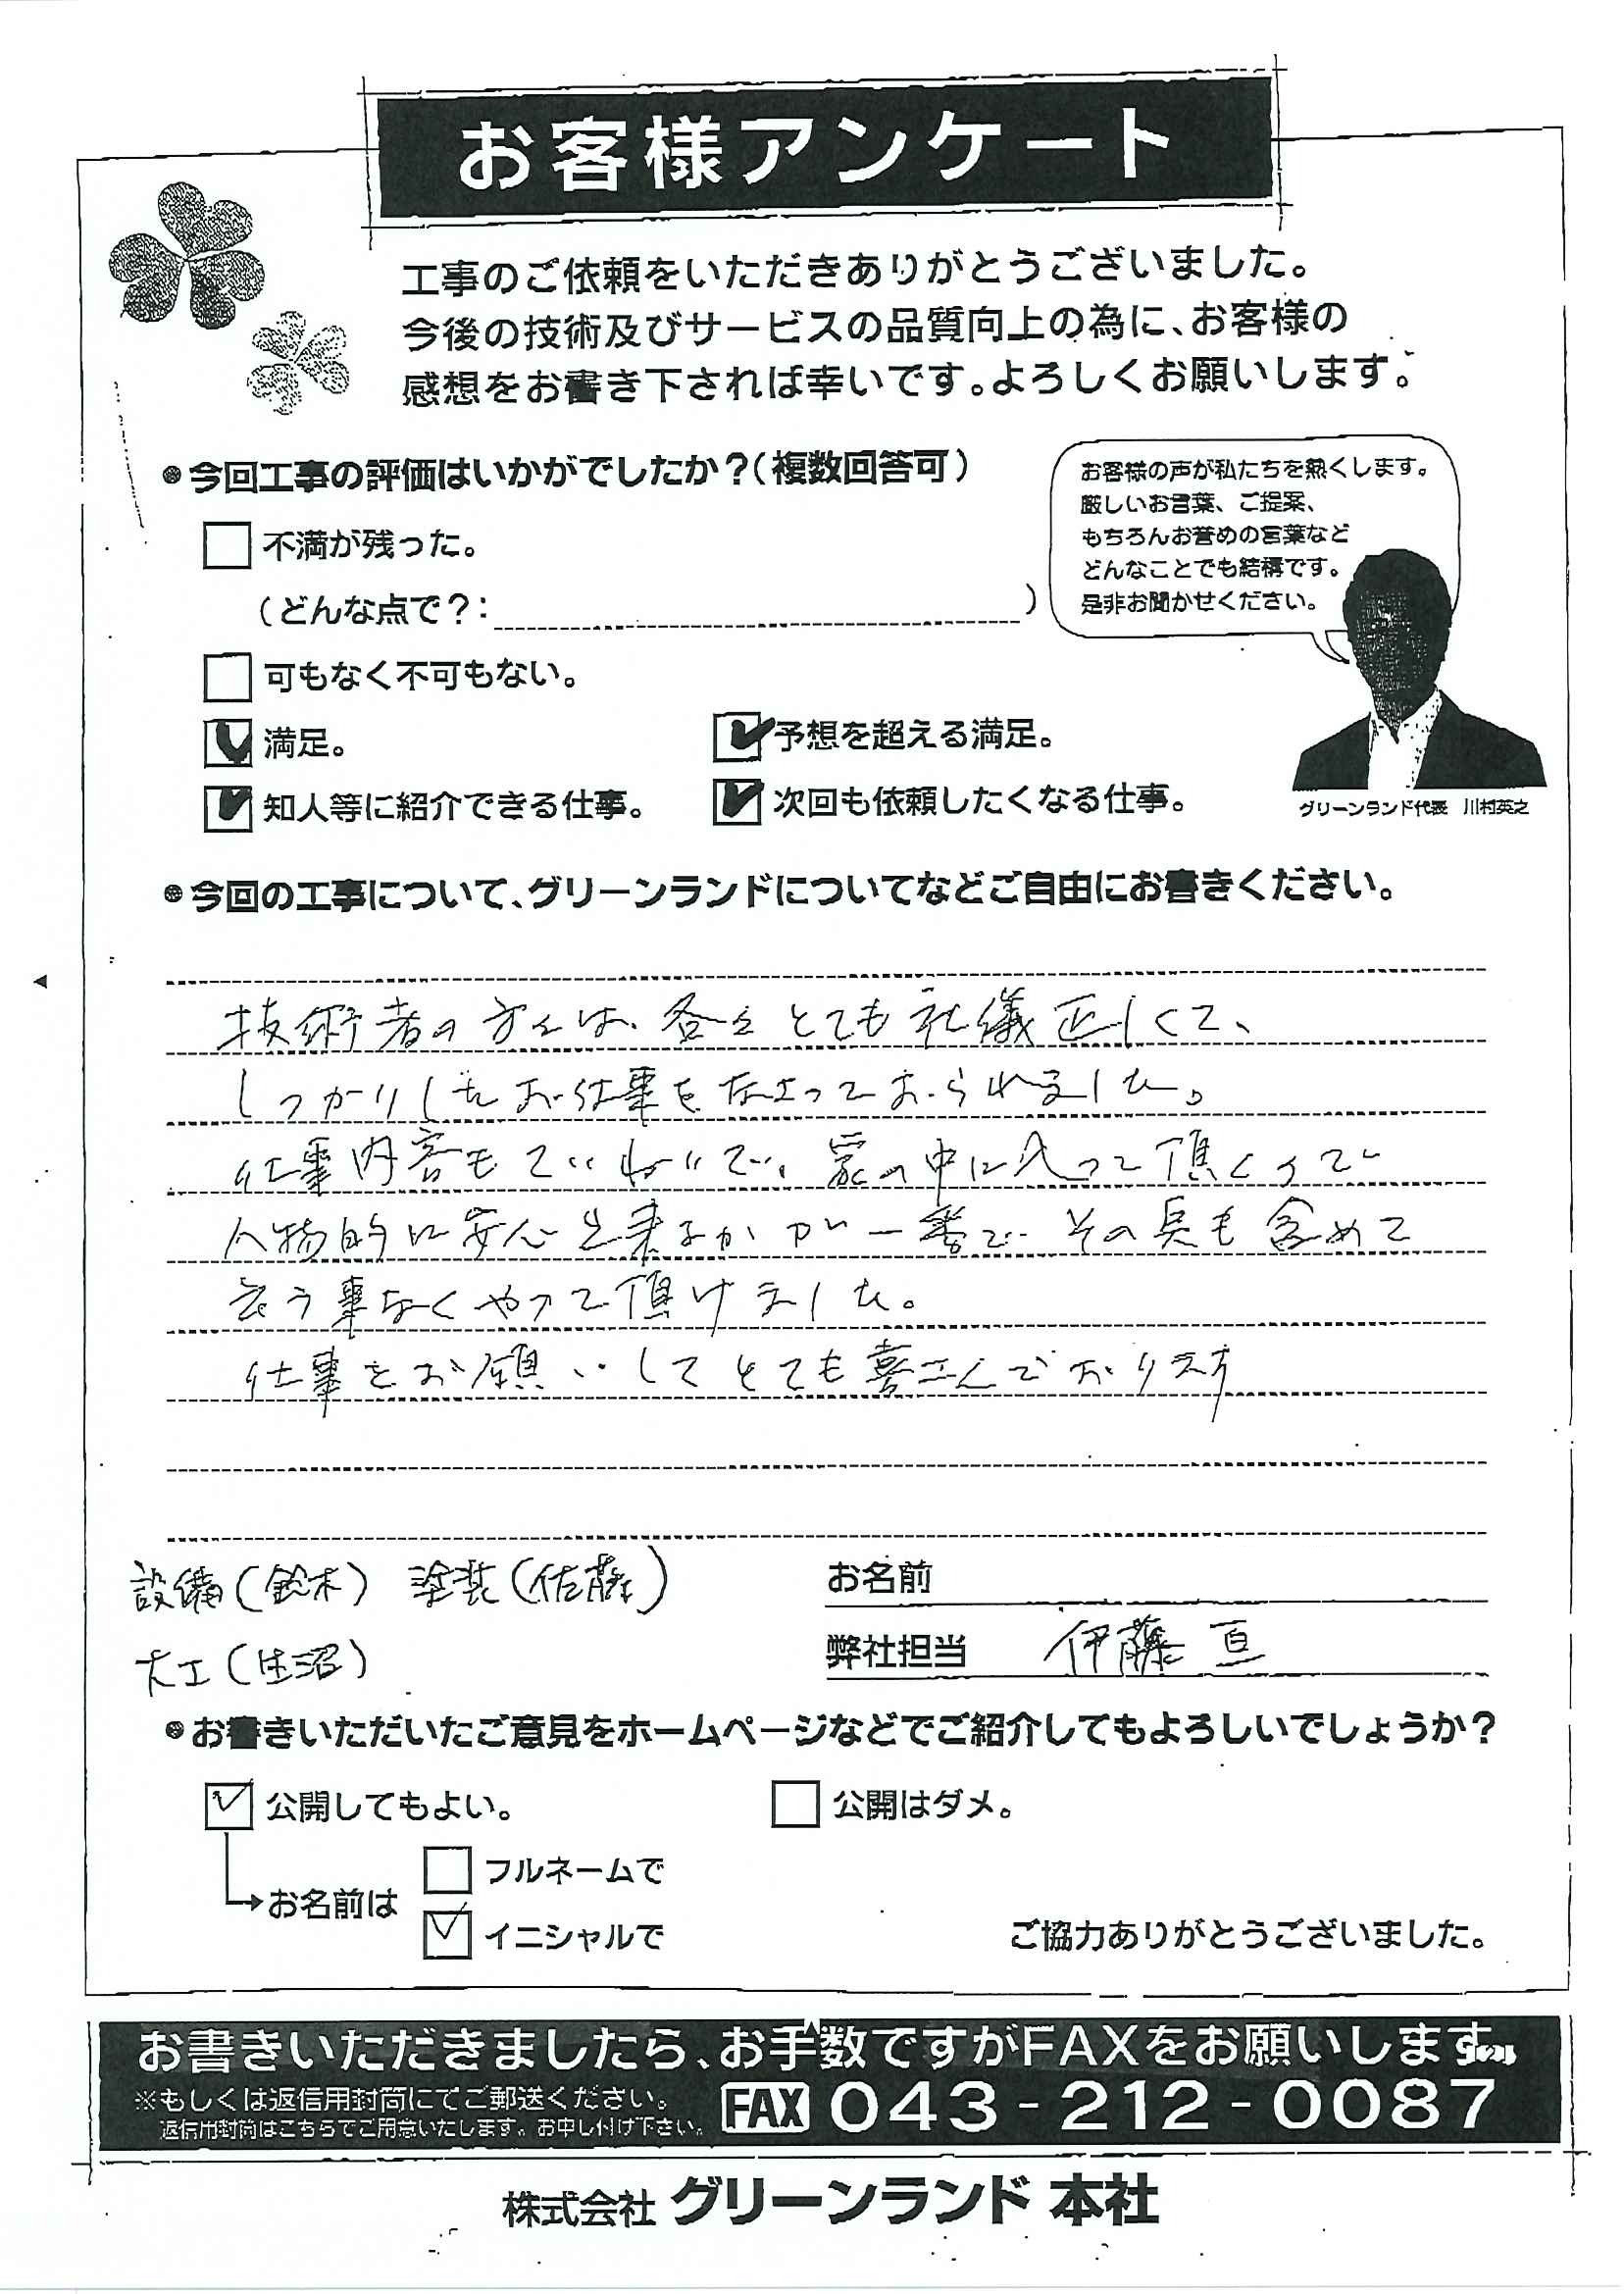 お客様アンケート
工事のご依頼をいただきありがとうございました。
今後の技術及びサービスの品質向上の為に、お客様の
感想をお書き下されば幸いです。よろしくお願いします。
●今回工事の評価はいかがでしたか?(複数回答可)
不満が残った。
(どんな点で?: )
可もなく不可もない。
満足。
予想を超える満足。
知人等に紹介できる仕事。
次回も依頼したくなる仕事。
お客様の声が私たちを熱くします。
厳しいお言葉、ご提案、
もちろんお誉めの言葉など
どんなことでも結構です。
是非お聞かせください。
グリーンランド代表 川村英之
●今回の工事について、グリーンランドについてなどご自由にお書きください。
技術者の方々は、各々とても礼儀正しくて、
しっかりしたお仕事をなさっておられました。
仕事内容もていねいで、家の中に入って頂くので
人物的に安心出来るかが一番で その点も含めて
言う事なくやって頂けました。
仕事をお願いしてとても喜こんでおります
設備(鈴木) 塗装(佐藤)
大工(生沼)
お名前
弊社担当 伊藤 亘
●お書きいただいたご意見をホームページなどでご紹介してもよろしいでしょうか?
公開してもよい。
公開はダメ。
→お名前は
フルネームで
イニシャルで
ご協力ありがとうございました。
お書きいただきましたら、お手数ですがFAXをお願いします
※もしくは返信用封筒にてご郵送ください。
返信用封筒はこちらでご用意いたします。お申し付け下さい。
FAX 043-212-0087
株式会社 グリーンランド 本社